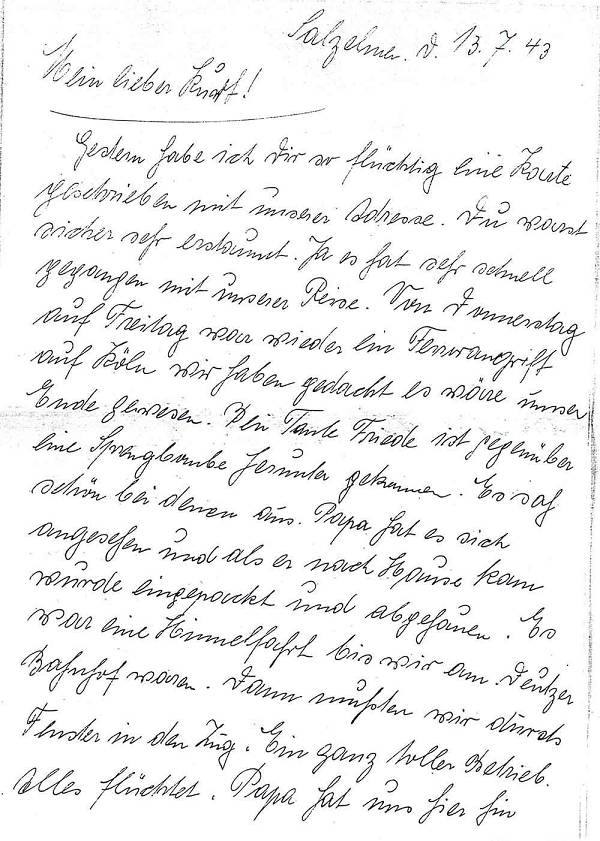 Salzelmen. d. 13.7.43
Mein lieber Kurt!
Gestern habe ich Dir so flüchtig eine Karte
geschrieben mit unserer Adresse. Du warst
sicher sehr erstaunt. Ja es hat sehr schnell
gegangen mit unserer Reise. Von Donnerstag
auf Freitag war wieder ein Terrorangriff
auf Köln wir haben gedacht es wäre unser
Ende gewesen. Bei Tante Friede ist gegenüber
eine Sprengbombe herunter gekommen. Es sah
schön bei denen aus. Papa hat es sich
angesehen und als er nach Hause kam
wurde eingepackt und abgehauen. Es
war eine Himmelfahrt bis wir am Deutzer
Bahnhof waren. Dann mußten wir durchs
Fenster in den Zug. Ein ganz toller Betrieb.
Alles flüchtet. Papa hat uns hier hin